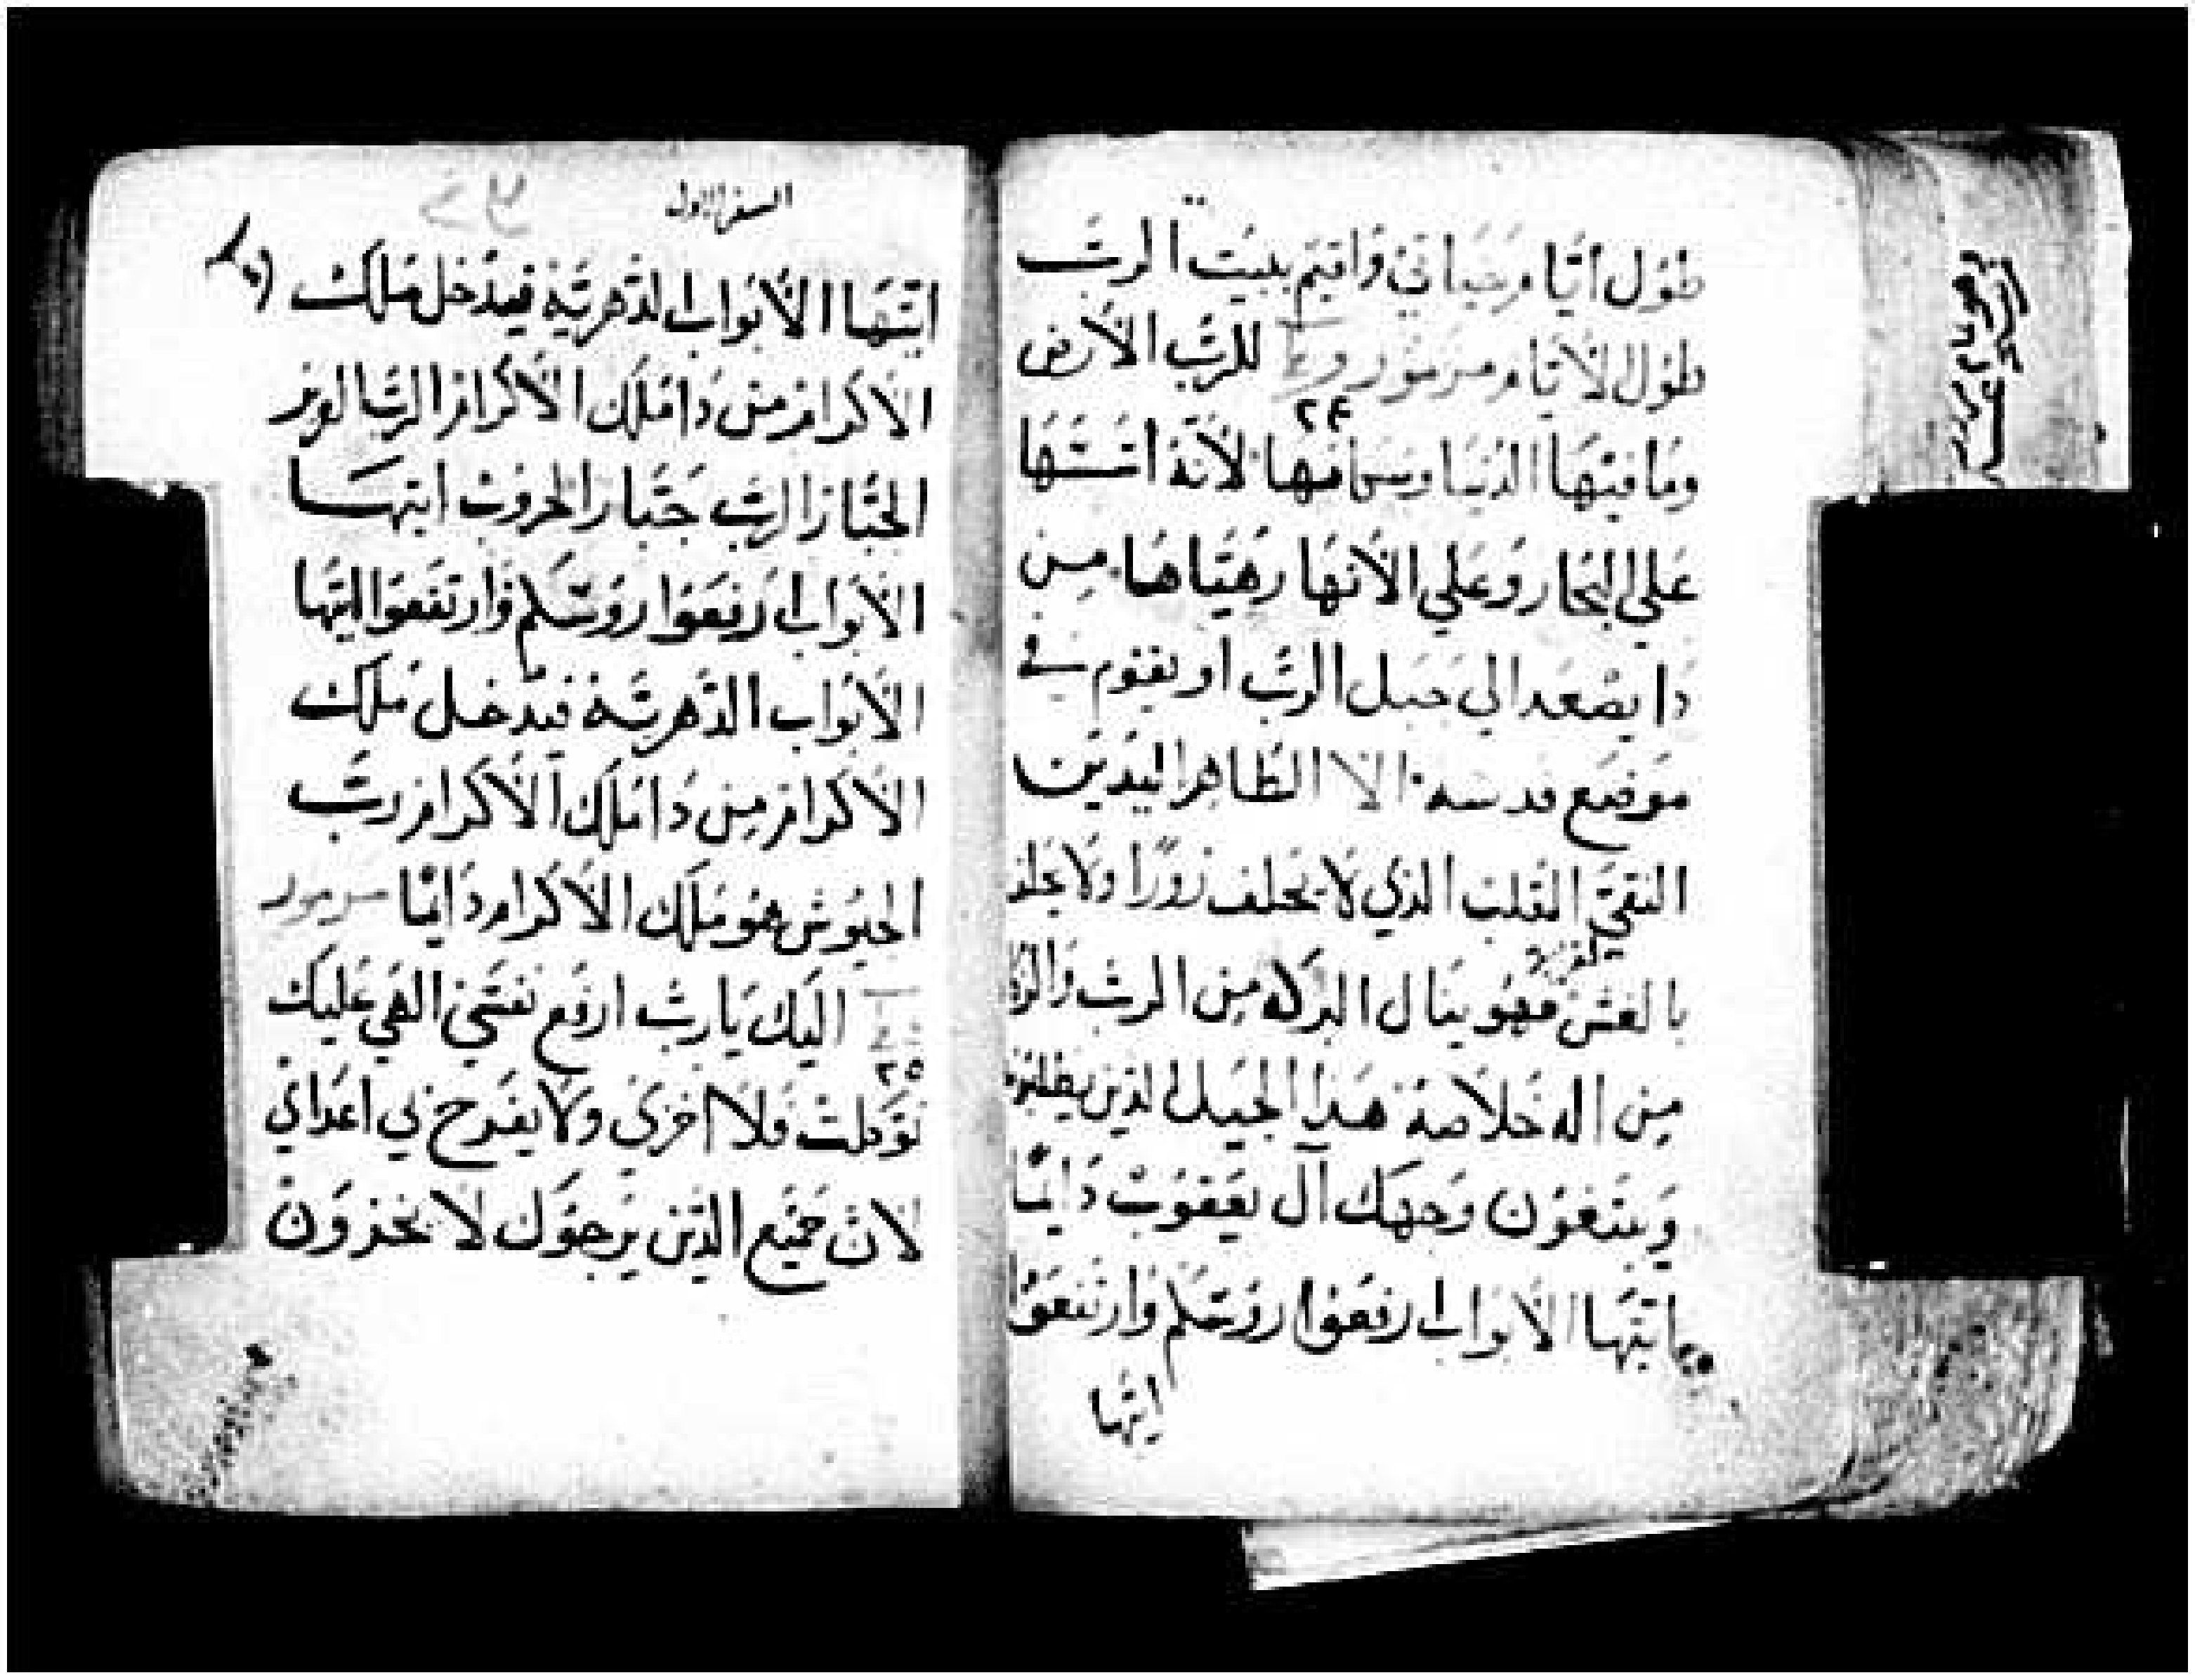 طول أيام حياتي واقيم ببيت الرب
طول الأيام مزمور للرب الأرض
٢٤
وما فيها الدنيا وسكانها لأنه اسسها
علي البحار وعلي الأنهار هيّاها من
دا يصعد الي جبل الرب او يقوم في
موضع قدسه الا الطاهر اليدين
النقي القلب الذي لا يحلف زورًا ولا يحلف
بالغش لقريبه فهو ينال البركه من الرب والرحمه
من اله خلاصه هذا الجيل الذين يطلبونه
ويبتغون وجهك آل يعقوب دايمًا
ايتها الأبواب ارفعوا روسكم وارتفعوا
ايتها
السفر الاول
ايتها الأبواب الدهرية فيدخل ملك
الأكرام من دا ملك الأكرام الرب العزيز
الجبار الرب جبار الحروب ايتها
الأبواب ارفعوا روسكم وارتفعوا ايتها
الأبواب الدهرية فيدخل ملك
الأكرام من دا ملك الأكرام رب
الجيوش هو ملك الأكرام دايمًا مزمور
اليك يا رب ارفع نفسي الهي عليك
٢٥
توكلت فلا اخزي ولا يفرح بي اعداي
لان جميع الذين يرجوك لا يخزون